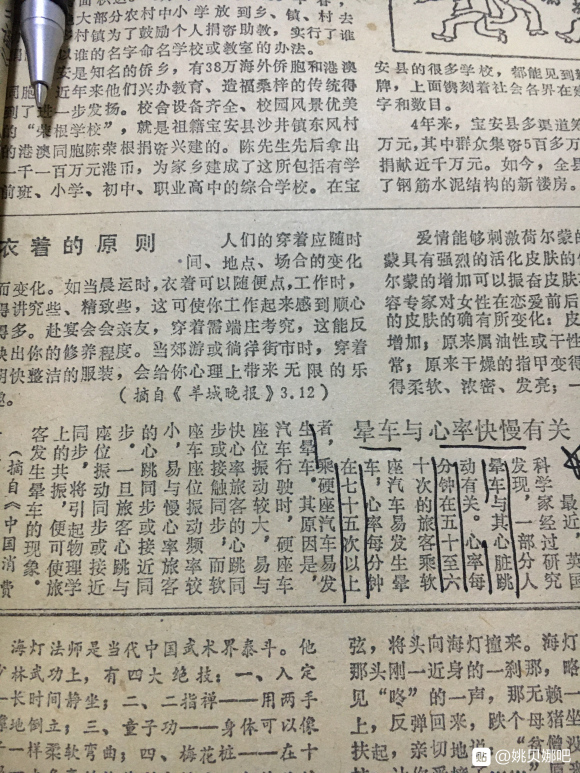 大部分农村中小学放到乡、镇、村去
村镇为了鼓励个人捐资助教，实行了谁
以谁的名字命名学校或教室的办法。
安是知名的侨乡，有38万海外侨胞和港澳
同胞，近年来他们兴办教育、造福桑梓的传统得
到了进一步发扬。校舍设备齐全、校园风景优美
的“荣根学校”，就是祖籍宝安县沙井镇东风村
的港澳同胞陈荣根捐资兴建的。陈先生先后拿出
一千一百万元港币，为家乡建成了这所包括有学
前班、小学、初中、职业高中的综合学校。在宝
安县的很多学校，都能见到
牌，上面镌刻着社会各界在建
字和数目。
4年来，宝安县多渠道筹
万元，其中群众集资5百多万
捐献近千万元。如今，全县
了钢筋水泥结构的新楼房。
衣着的原则
人们的穿着应随时
间、地点、场合的变化
而变化。如当晨运时，衣着可以随便点，工作时，
得讲究些、精致些，这可使你工作起来感到顺心
得多。赴宴会会亲友，穿着需端庄考究，这能反
映出你的修养程度。当郊游或徜徉街市时，穿着
明快整洁的服装，会给你心理上带来无限的乐
趣。
（摘自《羊城晚报》3.12）
爱情能够刺激荷尔蒙的
蒙具有强烈的活化皮肤的
尔蒙的增加可以振奋皮肤
容专家对女性在恋爱前后
的皮肤的确有所变化：皮
增加；原来属油性或干性
常；原来干燥的指甲变得
得柔软、浓密、发亮；一
晕车与心率快慢有关
最近，英国
科学家经过研究
发现，一部分人
晕车与其心脏跳
动有关。心率每
分钟在五十至六
十次的旅客乘软
座汽车易发生晕
车，心率每分钟
在七十五次以上
者，乘硬座汽车易发
生晕车。其原因是，
汽车行驶时，硬座车
座位振动较大，易与
快心率旅客的心跳同
步或接触同步，而软
座车座位振动频率较
小，易与慢心率旅客
的心跳同步或接近同
步。一旦旅客心跳与
座位振动同步或接近
同步，将引起物理学
上的共振，便可使旅
客发生晕车的现象。
（摘自《中国消费
海灯法师是当代中国武术界泰斗。他
林武功上，有四大绝技：一、入定
—长时间静坐；二、二指禅——用两手
地倒立；三、童子功——身体可以像
一样柔软弯曲；四、梅花桩——在十
弦，将头向海灯撞来。海灯
那头刚一近身的一刹那，略
见“咚”的一声，那无赖一
上，反弹回来，跌个母猪坐
扶起，亲切地说：“贫僧没
贴 @姚贝娜吧